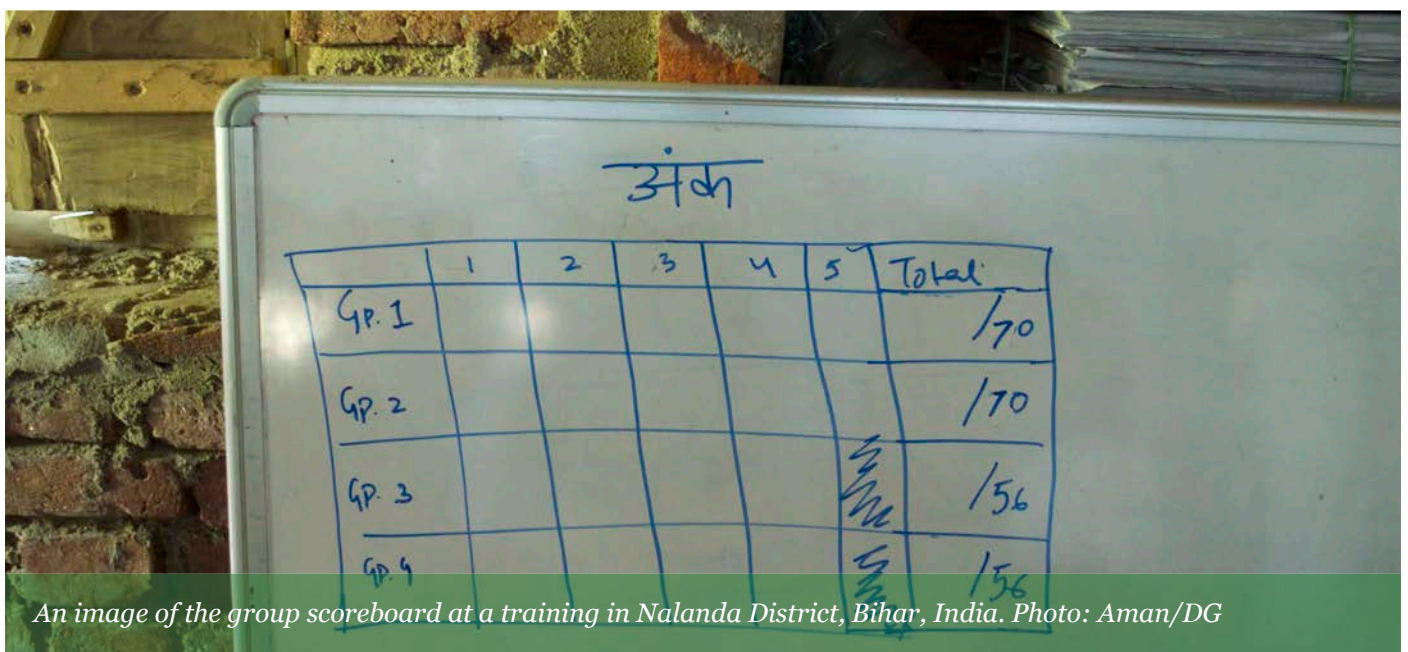 अंक
1 2 3 4 5 Total
Gp. 1 /70
Gp. 2 /70
Gp. 3 /56
Gp. 4 /56
An image of the group scoreboard at a training in Nalanda District, Bihar, India. Photo: Aman/DG